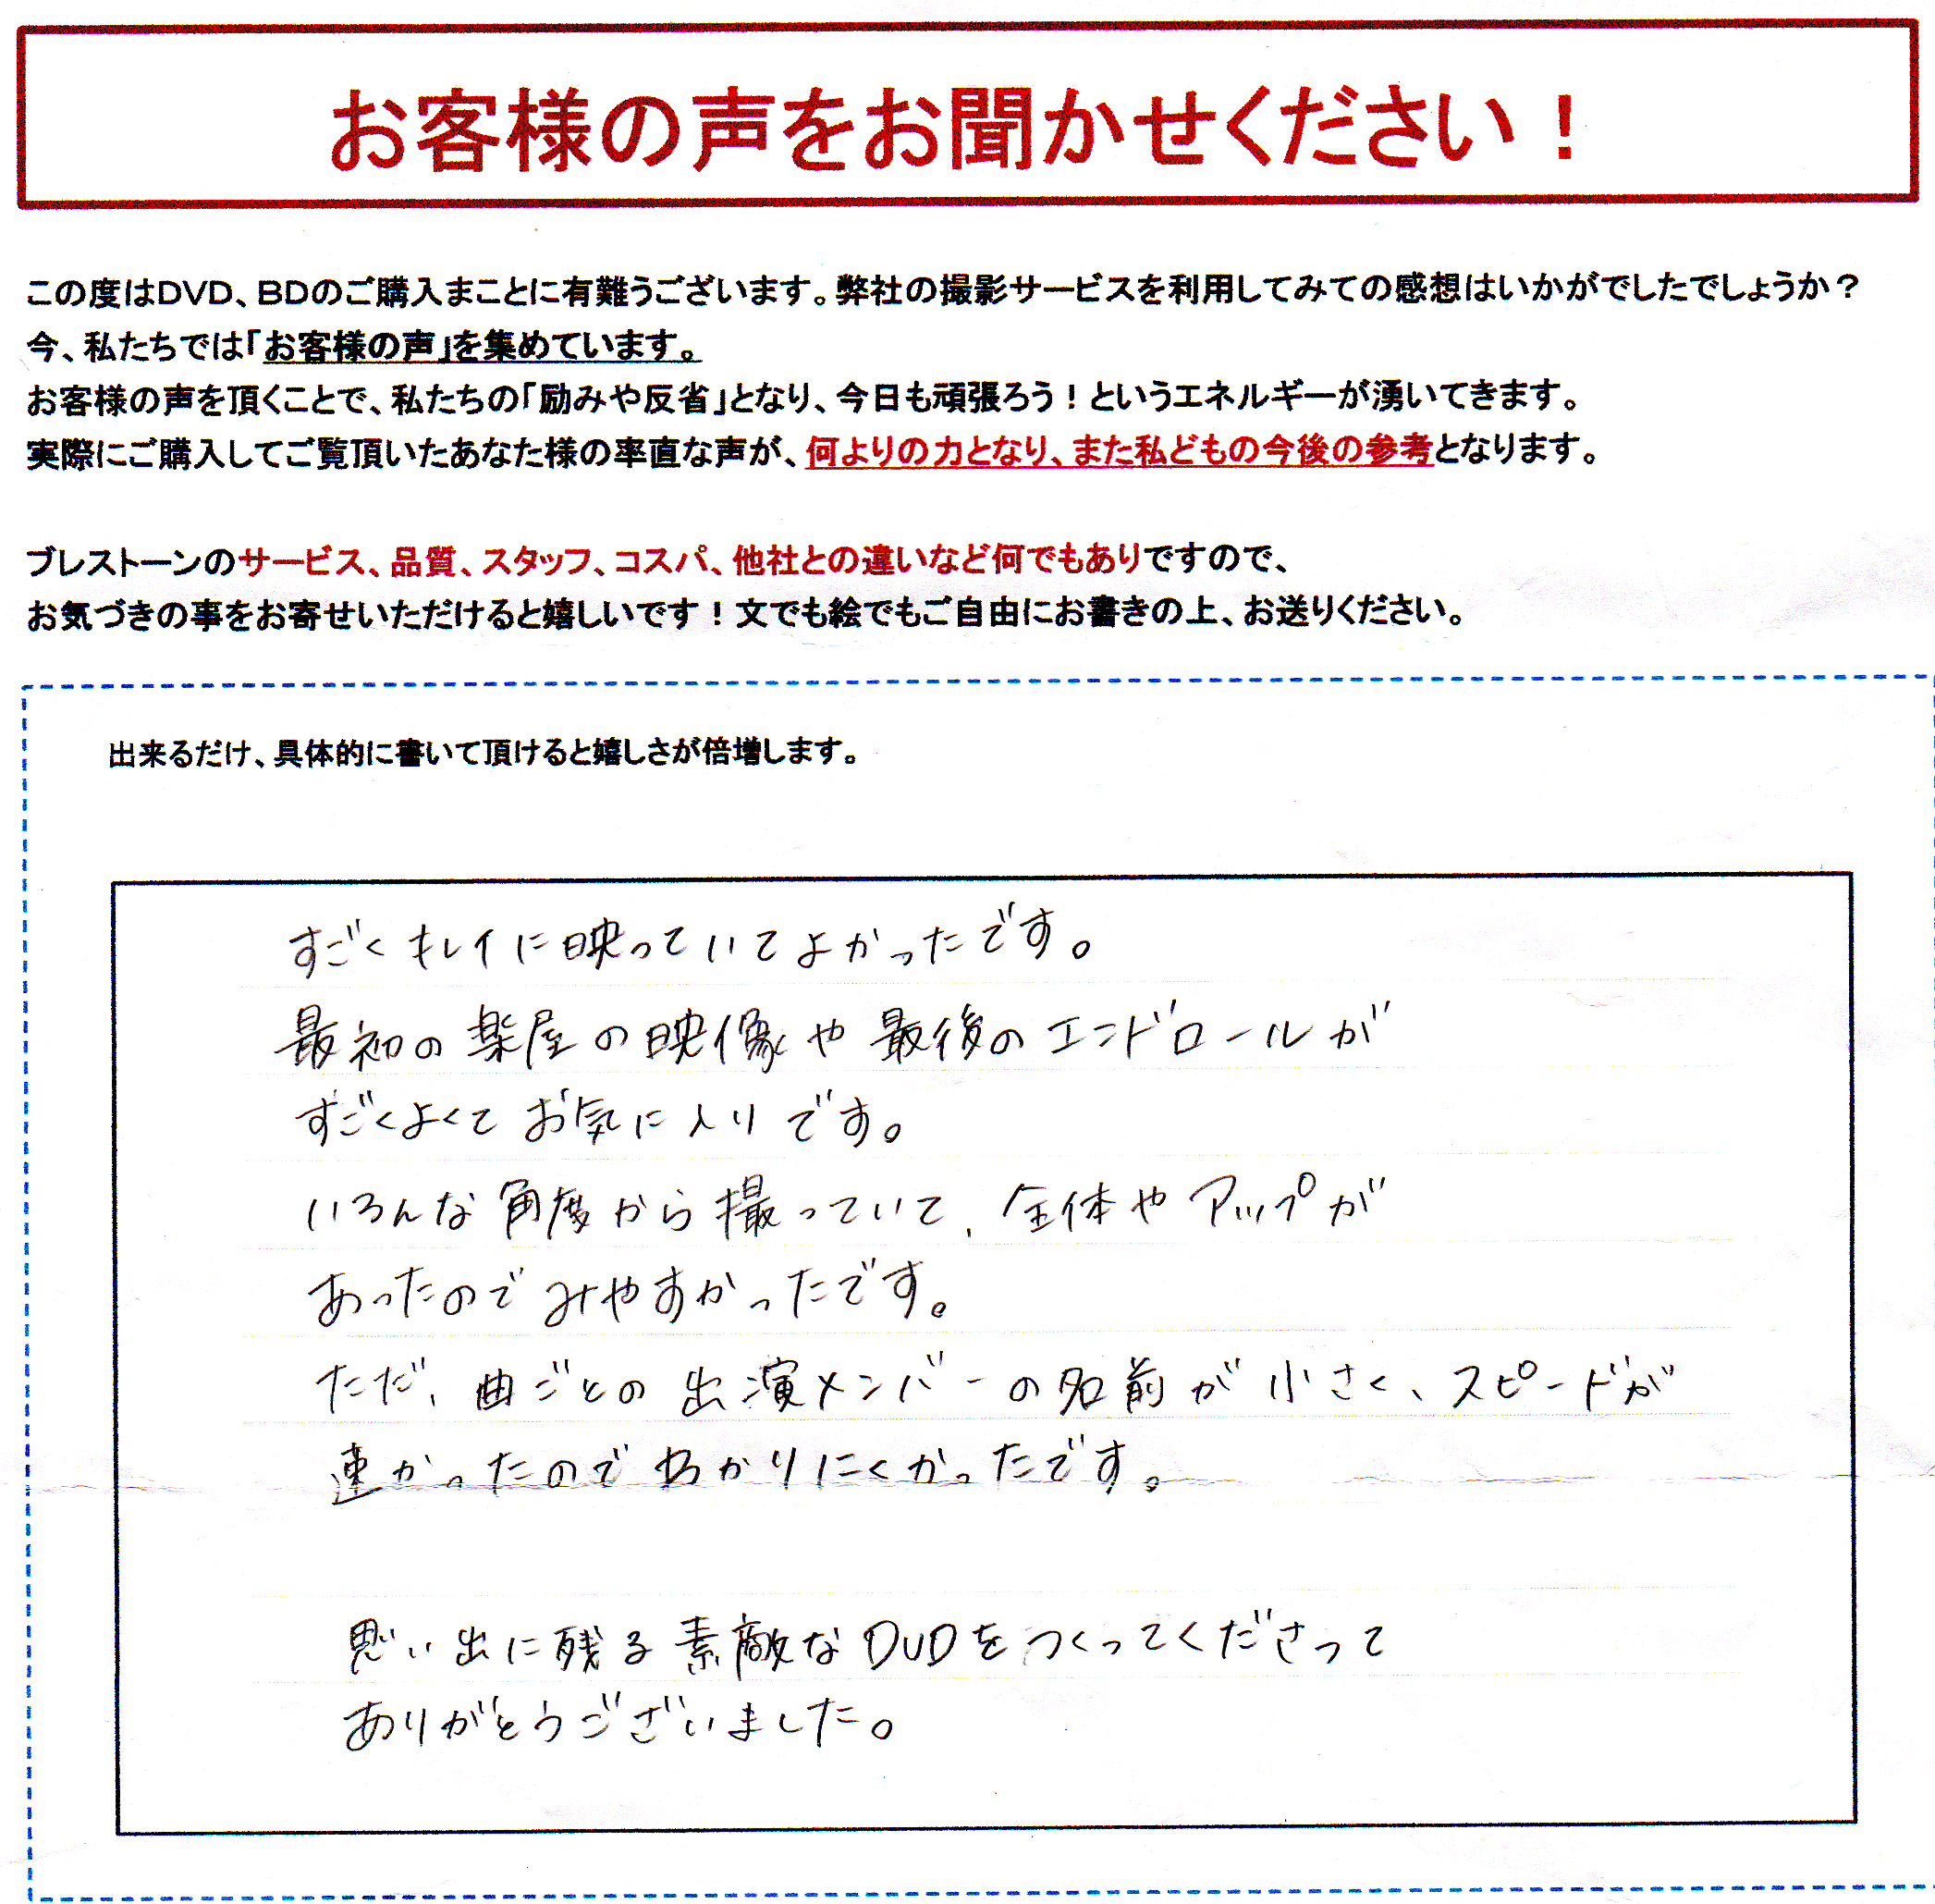 お客様の声をお聞かせください！
この度はDVD、BDのご購入まことに有難うございます。弊社の撮影サービスを利用してみての感想はいかがでしたでしょうか？
今、私たちでは「お客様の声」を集めています。
お客様の声を頂くことで、私たちの「励みや反省」となり、今日も頑張ろう！というエネルギーが湧いてきます。
実際にご購入してご覧頂いたあなた様の率直な声が、何よりの力となり、また私どもの今後の参考となります。
ブレストーンのサービス、品質、スタッフ、コスパ、他社との違いなど何でもありですので、
お気づきの事をお寄せいただけると嬉しいです！文でも絵でもご自由にお書きの上、お送りください。
出来るだけ、具体的に書いて頂けると嬉しさが倍増します。
すごくキレイに映っていてよかったです。
最初の楽屋の映像や最後のエンドロールが
すごくよくてお気に入りです。
いろんな角度から撮っていて、全体やアップが
あったのでみやすかったです。
ただ、曲ごとの出演メンバーの名前が小さく、スピードが
速かったのでわかりにくかったです。
思い出に残る素敵なDVDをつくってくださって
ありがとうございました。